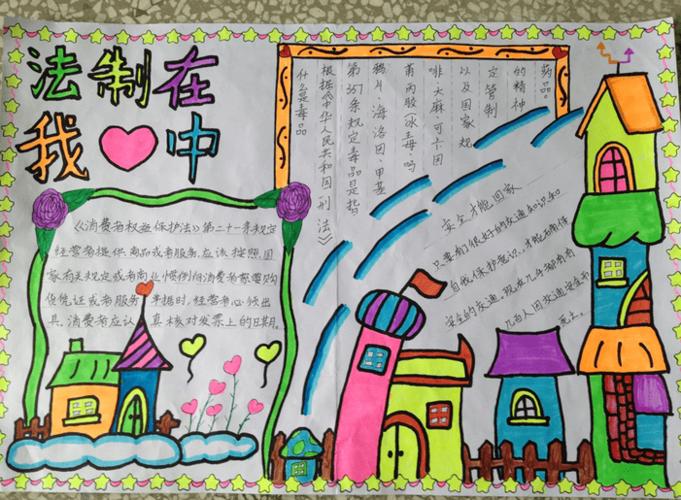 法制在
我中
什么是毒品
根据《中华人民共和国刑法》
第357条规定毒品是指
鸦片、海洛因、甲基
啡、大麻、可卡因
以及国家规
定管制
的精神
药品。
《消费者权益保护法》第二十一条规定
经营者提供商品或者服务,应该按照国
家有关规定或者商业惯例向消费者索要购
货凭证或者服务单据时,经营者心须出
具,消费者应认真核对发票上的日期。
安全才能回家
只要有很好的交通知识和
自我保护意识,才能
安全的交通,现在几乎都有
几百人因交通安全而
死亡。